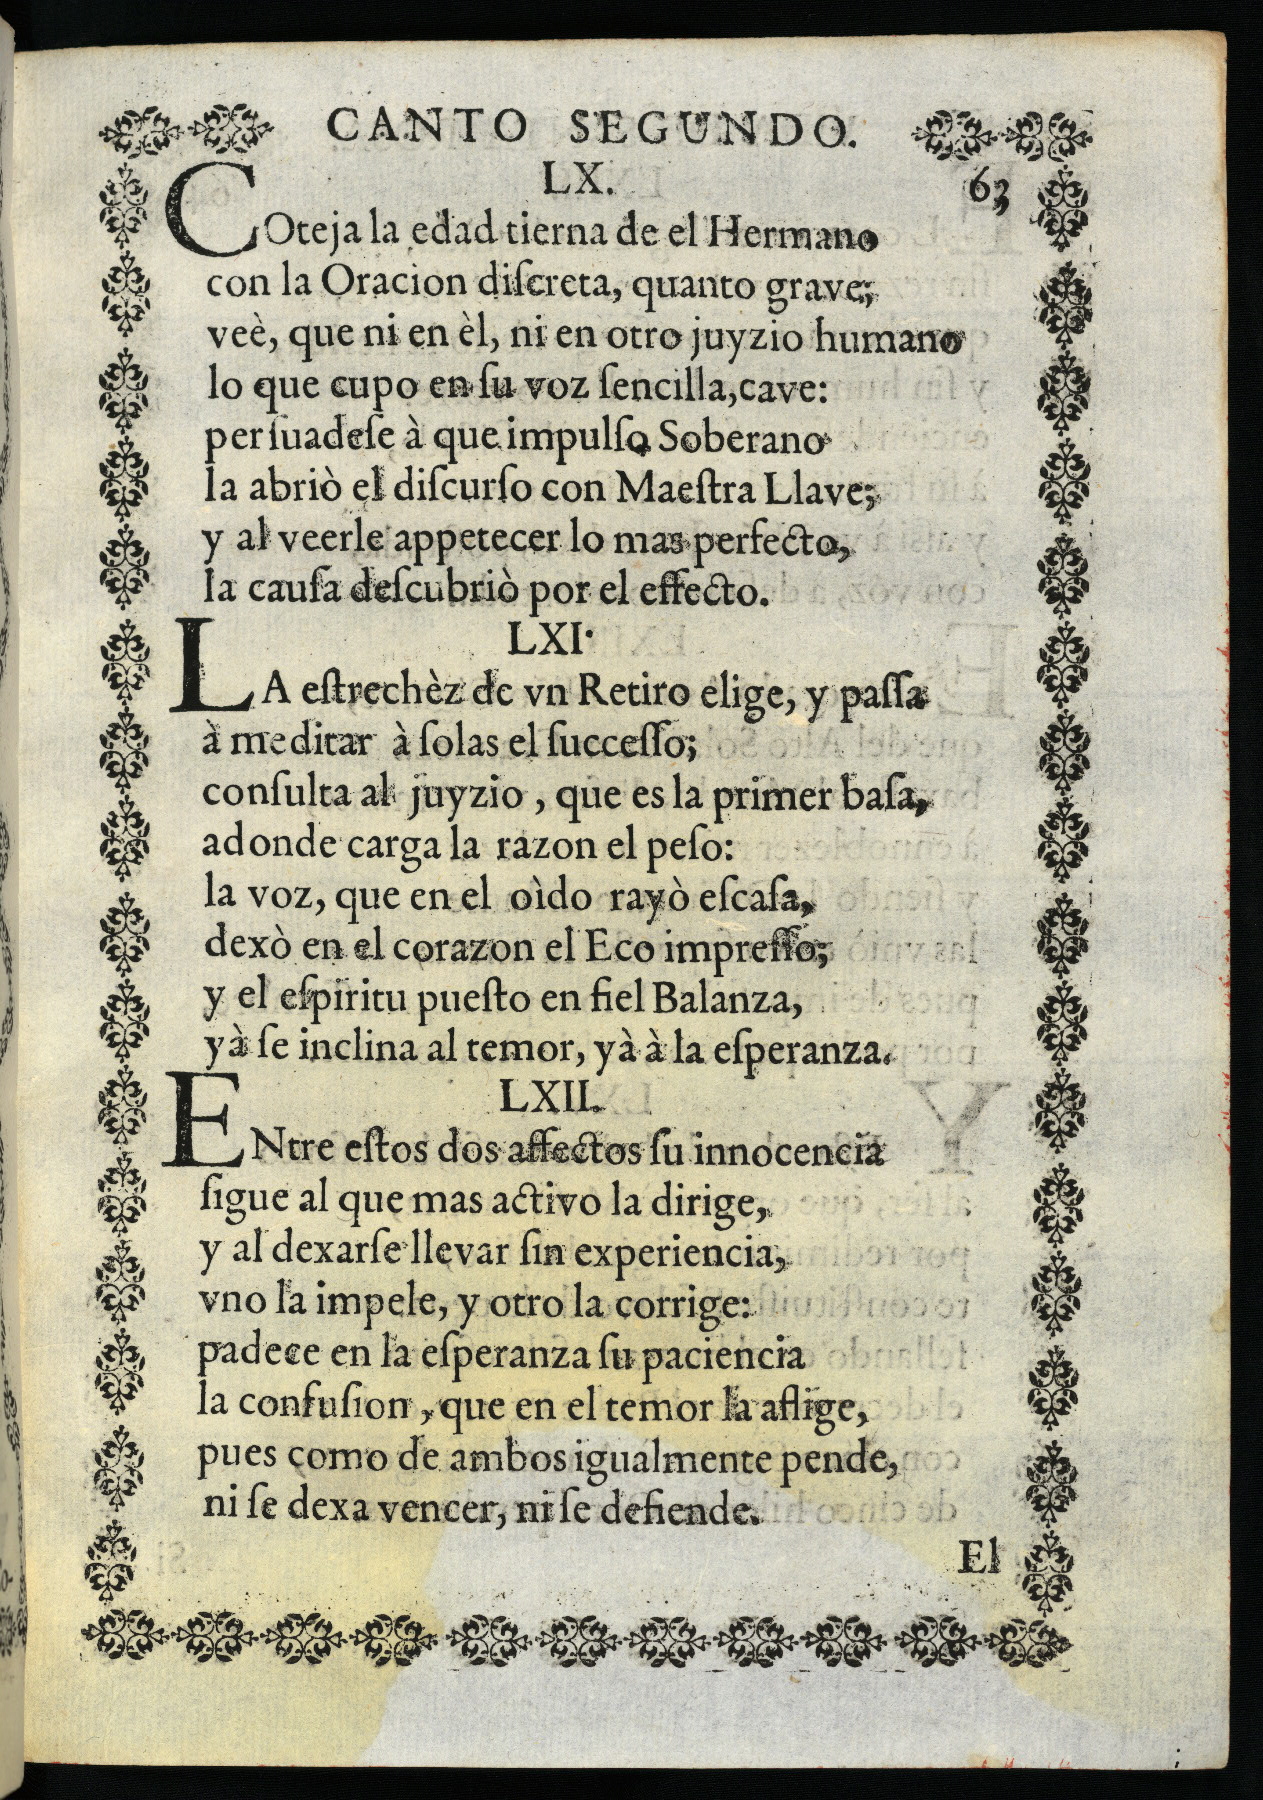 CANTO SEGUNDO.
LX.
63
COteja la edad tierna de el Hermano
con la Oracion diſcreta, quanto grave;
veè, que ni en èl, ni en otro juyzio humano
lo que cupo en ſu voz ſencilla,cave:
perſuadeſe à que impulſo Soberano
la abriò el diſcurſo con Maeſtra Llave;
y al veerle appetecer lo mas perfecto,
la cauſa deſcubriò por el effecto.
LXI.
LA eſtrechèz de vn Retiro elige, y paſſa
à meditar à ſolas el ſucceſſo;
conſulta al juyzio , que es la primer baſa,
adonde carga la razon el peſo:
la voz, que en el oìdo rayò eſcaſa,
dexò en el corazon el Eco impreſſo;
y el eſpiritu pueſto en fiel Balanza,
yà ſe inclina al temor, yà à la eſperanza.
LXII.
ENtre eſtos dos affectos ſu innocencia
ſigue al que mas activo la dirige,
y al dexarſe llevar ſin experiencia,
vno la impele, y otro la corrige:
padece en la eſperanza ſu paciencia
la confuſion , que en el temor la aflige,
pues como de ambos igualmente pende,
ni ſe dexa vencer, ni ſe defiende.
El